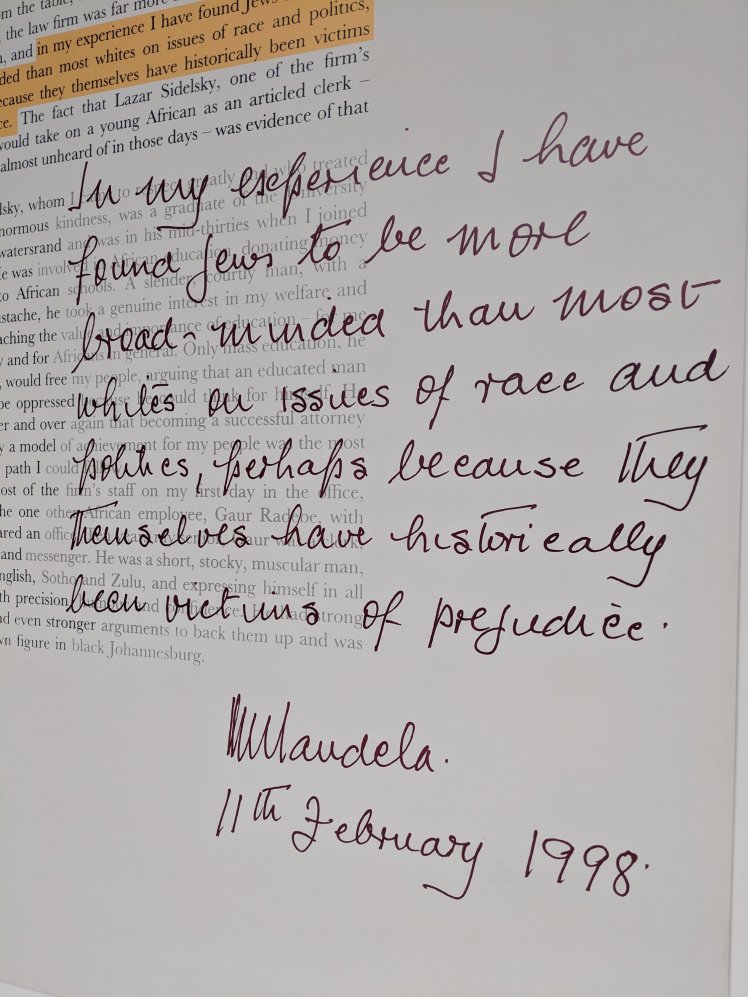 om the table,
the law firm was far more
, and in my experience I have found Jews
ded than most whites on issues of race and politics,
ecause they themselves have historically been victims
ce. The fact that Lazar Sidelsky, one of the firm's
would take on a young African as an articled clerk –
almost unheard of in those days – was evidence of that
lsky, whom I to greatly and who treated
normous kindness, was a graduate of the University
watersrand and was in his mid-thirties when I joined
e was involved in African education, donating money
to African schools. A slender, courtly man, with a
stache, he took a genuine interest in my welfare and
aching the value and importance of education – for me
y and for Africans in general. Only mass education, he
, would free my people, arguing that an educated man
be oppressed could think for himself. He
er and over again that becoming a successful attorney
y a model of achievement for my people was the most
path I could
ost of the firm's staff on my first day in the office,
he one other African employee, Gaur Radebe, with
ared an office
and messenger. He was a short, stocky, muscular man,
nglish, Sotho and Zulu, and expressing himself in all
th precision, strong
d even stronger arguments to back them up and was
wn figure in black Johannesburg.
In my experience I have
found Jews to be more
broad-minded than most
whites on issues of race and
politics, perhaps because they
themselves have historically
been victims of prejudice.
NMandela.
11th February 1998.